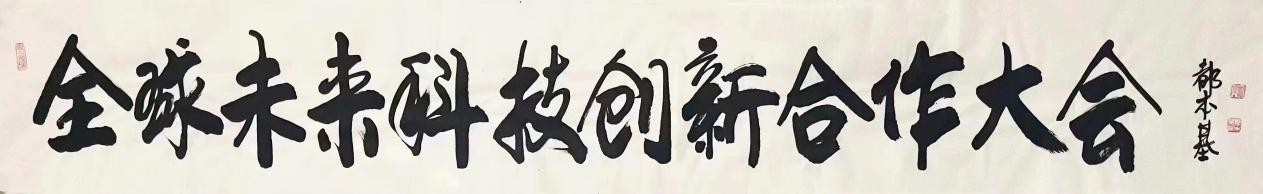 全球未来科技创新合作大会
都本基